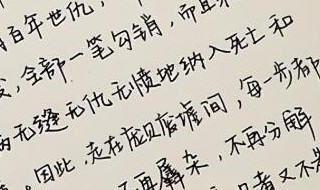 百年世仇，
，全部一笔勾销，而且
无缝无仇无愤地纳入死亡和
。因此，走在庞贝废墟间，每一步都
再羼杂，不再分解
者又不